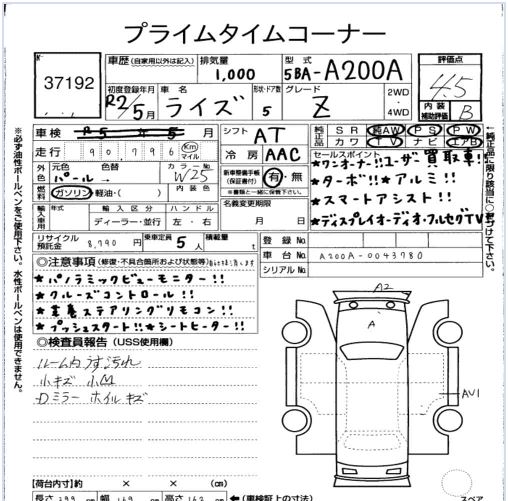 プライムタイムコーナー
37192
車歴 (自家用以外は記入)
排気量 1,000
型式 5BA-A200A
評価点 4.5
初度登録年月 R2/5月
車名 ライズ
形状・ドア数 5
グレード Z
2WD・4WD
内装補助評価 B
※必ず油性ボールペンをご使用下さい。水性ボールペンは使用できません。
車検 R5年5月
シフト AT
純正品 SR 純AW PS PW
カワ TV ナビ エアB
走行 90796 Km マイル
冷房 AAC
外色 元色 パール → 色替
カラーNo W25
新車整備手帳(保証書付) 有・無
※書類と一緒に保管下さい。
燃料 ガソリン 軽油・( )
内装色
名義変更期限 月 日
セールスポイント
★ワンオーナー!ユーザー買取車!!
★ターボ!!★アルミ!!
★スマートアシスト!!
★ディスプレイオーディオ・フルセグTV
輸入車用 年式 輸入区分 ハンドル
ディーラー・並行 左・右
リサイクル預託金 8,790円
乗車定員 5人
積載量 t
登録No.
車台No. A200A-0043780
シリアルNo.
◎注意事項 (修復・不具合箇所および状態等)
★パノラミックビューモニター!!
★クルーズコントロール!!
★革巻ステアリングリモコン!!
★プッシュスタート!!★シートヒーター!!
◎検査員報告 (USS使用欄)
ルーム内うす汚れ
小キズ 小凹
Dミラー ホイルキズ
A2
A
AU1
【荷台内寸】約 × × (cm)
長さ 399 cm 幅 169 cm 高さ 162 cm
(車検証上の寸法)
スペア